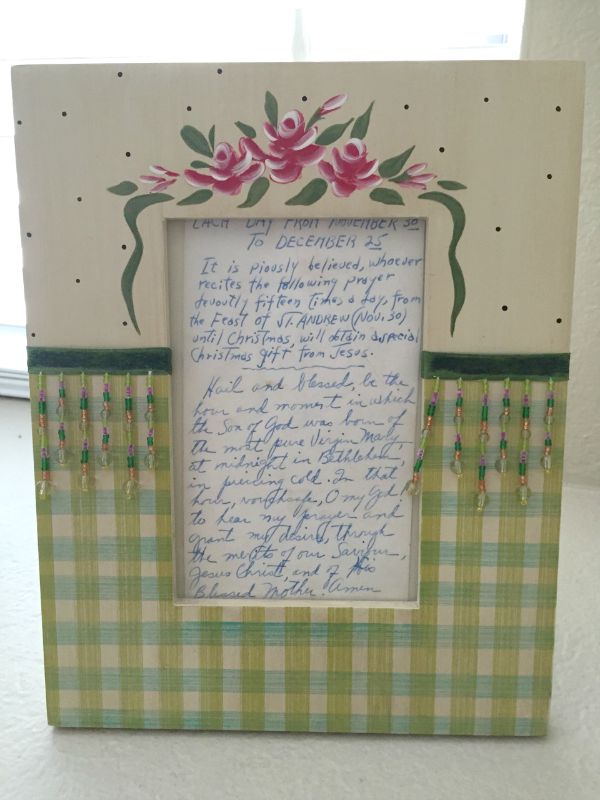 EACH DAY FROM NOVEMBER 30
TO DECEMBER 25
It is piously believed, whoever
recites the following prayer
devoutly fifteen times a day, from
the Feast of ST. ANDREW (NOV. 30)
until Christmas, will obtain a special
Christmas gift from Jesus.
Hail and blessed, be the
hour and moment in which
the Son of God was born of
the most pure Virgin Mary,
at midnight in Bethlehem,
in piercing cold. In that
hour, vouchsafe, O my God!
to hear my prayer and
grant my desire, through
the merits of our Saviour,
Jesus Christ, and of His
Blessed Mother. Amen